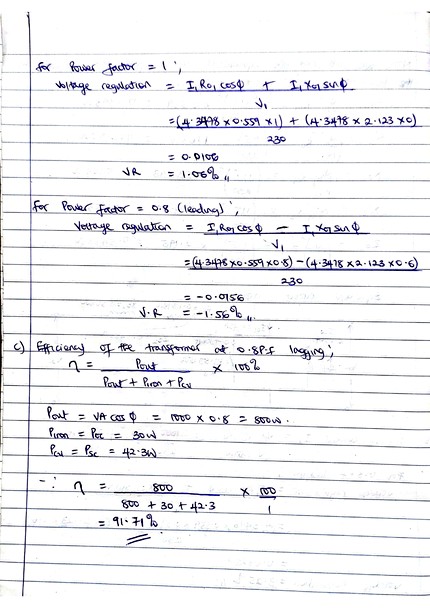 for Power factor = 1 ;
Voltage regulation = I₁R₀₁cosϕ + I₁X₀₁sinϕ
V₁
= (4.3478 x 0.559 x 1) + (4.3478 x 2.123 x 0)
230
= 0.0106
VR = 1.06% ,,
for Power factor = 0.8 (leading) ;
Voltage regulation = I₁R₀₁cosϕ - I₁X₀₁sinϕ
V₁
= (4.3478 x 0.559 x 0.8) - (4.3478 x 2.123 x 0.6)
230
= -0.0156
V.R = -1.56% ,,
c) Efficiency of the transformer at 0.8 P.f lagging ;
η = Pout x 100%
Pout + Piron + Pcu
Pout = VA cosϕ = 1000 x 0.8 = 800w.
Piron = Poc = 30w
Pcu = Psc = 42.3w
∴ η = 800 x 100
800 + 30 + 42.3 1
= 91.71%